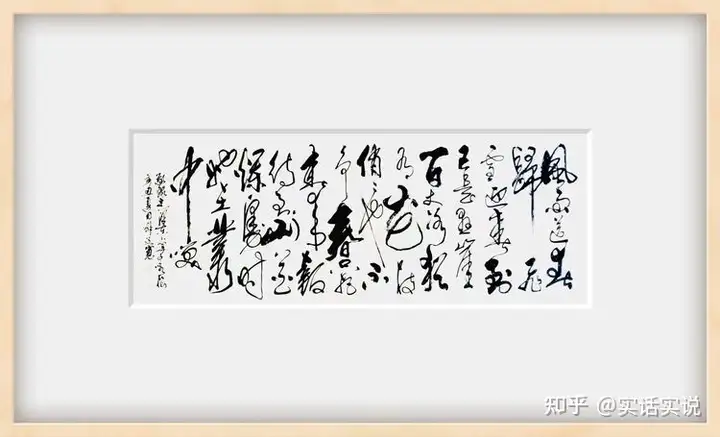 風雨送春
歸飛
雪迎春到
已是懸崖
百丈冰猶
有花枝
俏俏也不
争春只
把春来報
待到山花
爛漫時
她在叢
中笑
知乎 @实话实说